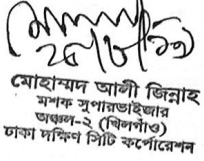 ২৫/৮/১৯
মোহাম্মদ আলী জিন্নাহ
মশক সুপারভাইজার
অঞ্চল-২ (খিলগাঁও)
ঢাকা দক্ষিণ সিটি কর্পোরেশন